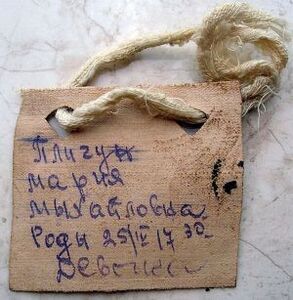 Плигун
мария
михайловна
Роды 25/II 17 30
Девочка